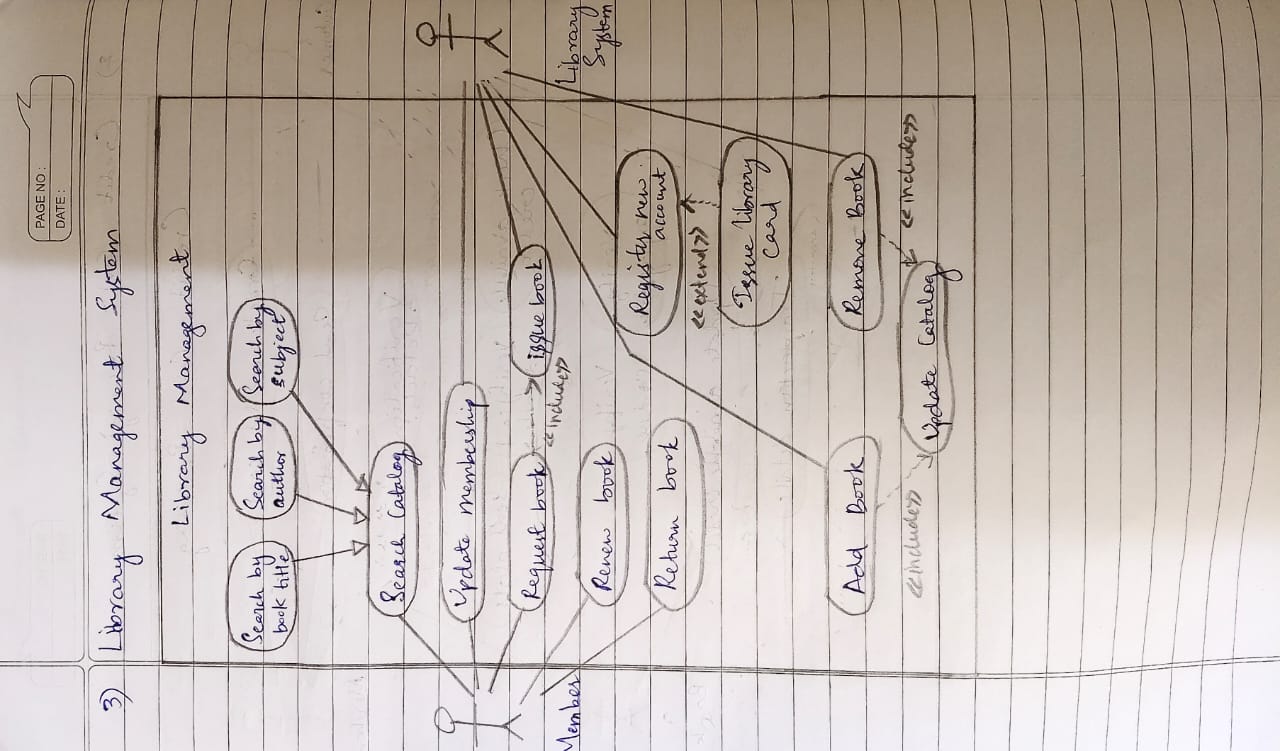 PAGE NO:
DATE:
3) Library Management System
Library Management
Search by
book title
Search by
author
Search by
subject
Search Catalog
Update membership
Request book
<<include>>
issue book
Renew book
Return book
Register new
account
<<extend>>
Issue library
card
Add Book
Remove Book
<<include>>
Update Catalog
<<include>>
Member
Library
System